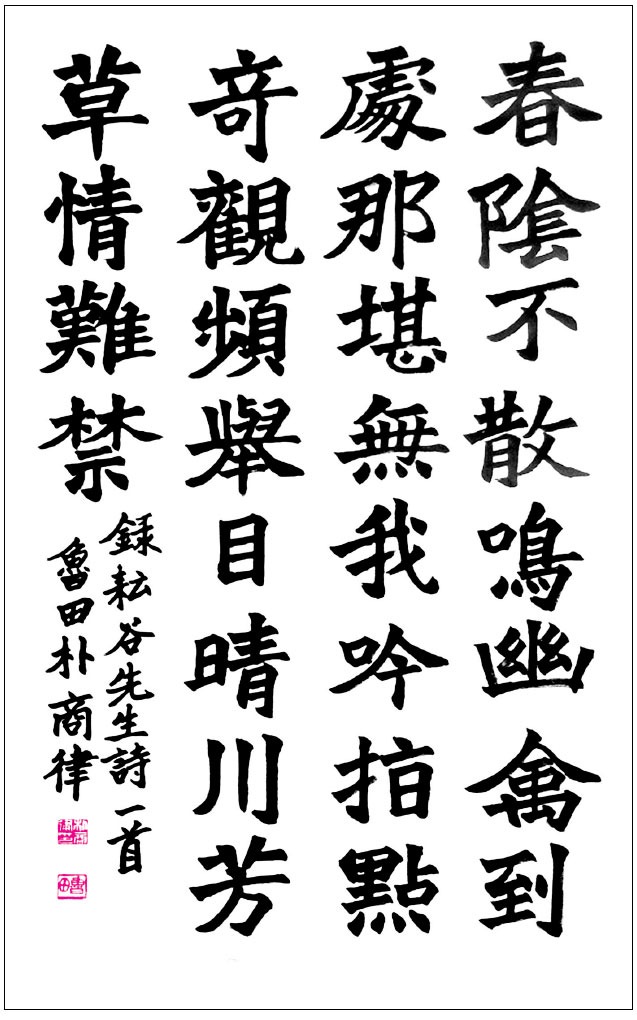 春陰不散鳴幽禽到
處那堪無我吟拍點
奇觀頻舉目晴川芳
草情難禁
録耘谷先生詩一首
魯田朴商律